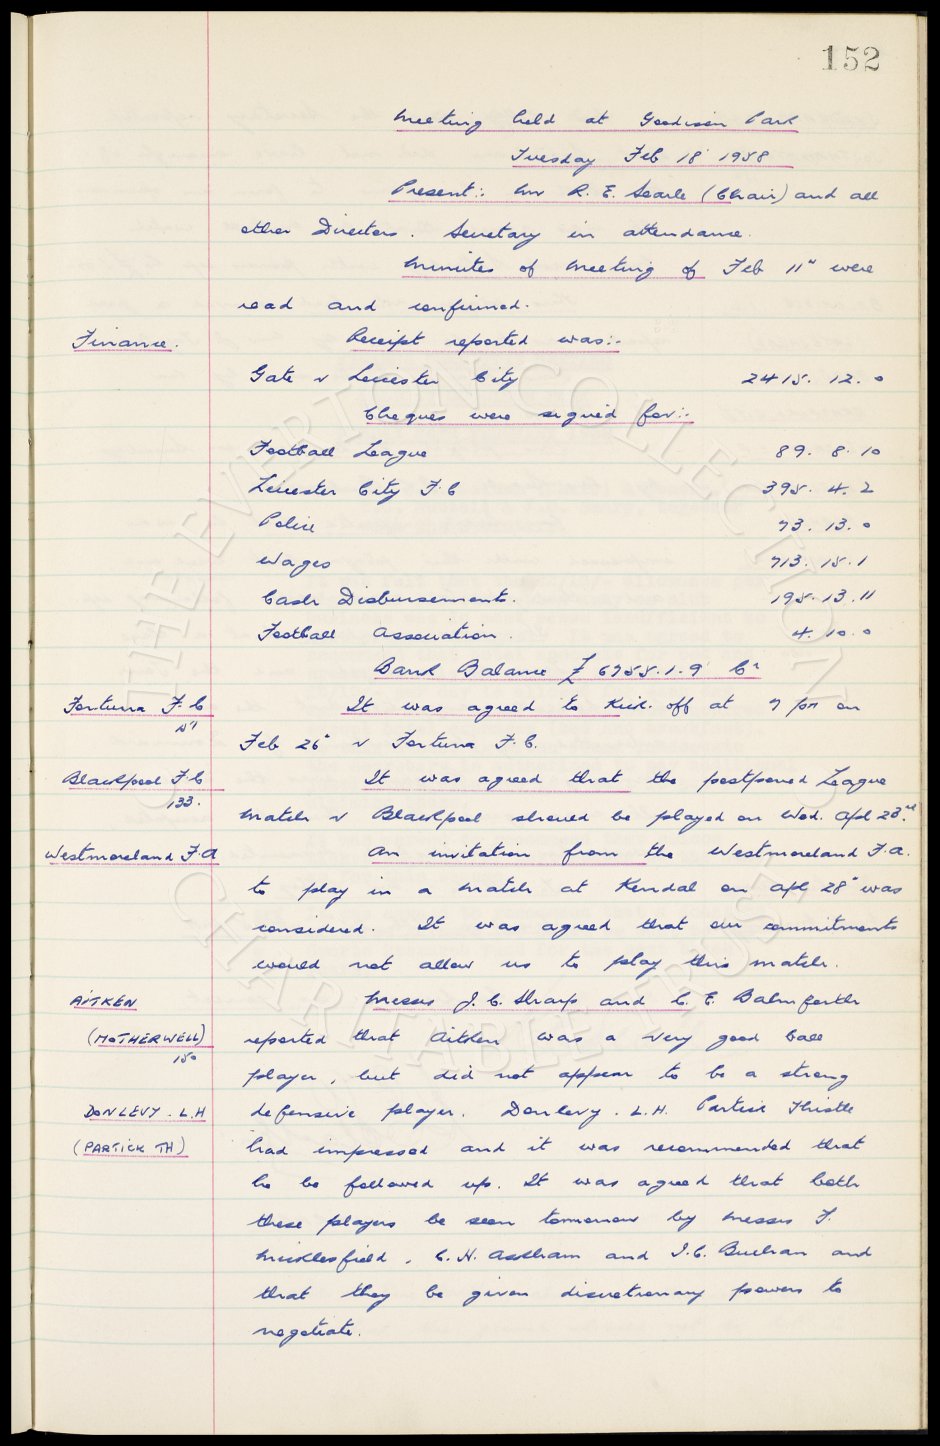 152
Meeting held at Goodison Park
Tuesday Feb 18 1958
Present:- Mr R. E. Searle (Chair) and all
other Directors. Secretary in attendance.
Minutes of Meeting of Feb 11" were
read and confirmed.
Finance. Receipt reported was:-
Gate v Leicester City 2415. 12. 0
Cheques were signed for:-
Football League 89. 8. 10
Leicester City F.C 395. 4. 2
Police 73. 13. 0
Wages 713. 15. 1
Cash Disbursements. 195. 13. 11
Football Association. 4. 10. 0
Bank Balance £ 6955. 1. 9 Cr
Fortuna F.C It was agreed to kick. off at 7 pm on
Feb 26" v Fortuna F.C.
Blackpool F.C It was agreed that the postponed League
133. match v Blackpool should be played on Wed. Apl 23rd.
Westmoreland F.A An invitation from the Westmoreland F.A.
to play in a match at Kendal on Apl 28" was
considered. It was agreed that our commitments
would not allow us to play this match.
AITKEN Messrs J. C. Sharp and C. E. Balmforth
(MOTHERWELL) reported that Aitken was a very good ball
150
player, but did not appear to be a strong
DONLEVY. L.H defensive player. Donlevy. L.H. Partick Thistle
(PARTICK TH) had impressed and it was recommended that
he be followed up. It was agreed that both
these players be seen tomorrow by Messrs F.
Micklesfield, C. H. Askham and I. C. Buchan and
that they be given discretionary powers to
negotiate.
THE EVERTON COLLECTION
CHARITABLE TRUST